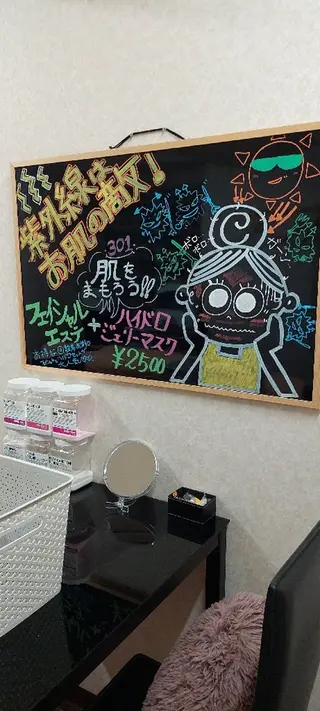 紫外線は
お肌の敵!
301
肌を
まもろう!!
フェイシャル
エステ
+
ハイドロ
ジェリーマスク
¥2500
ボロ
ボロ